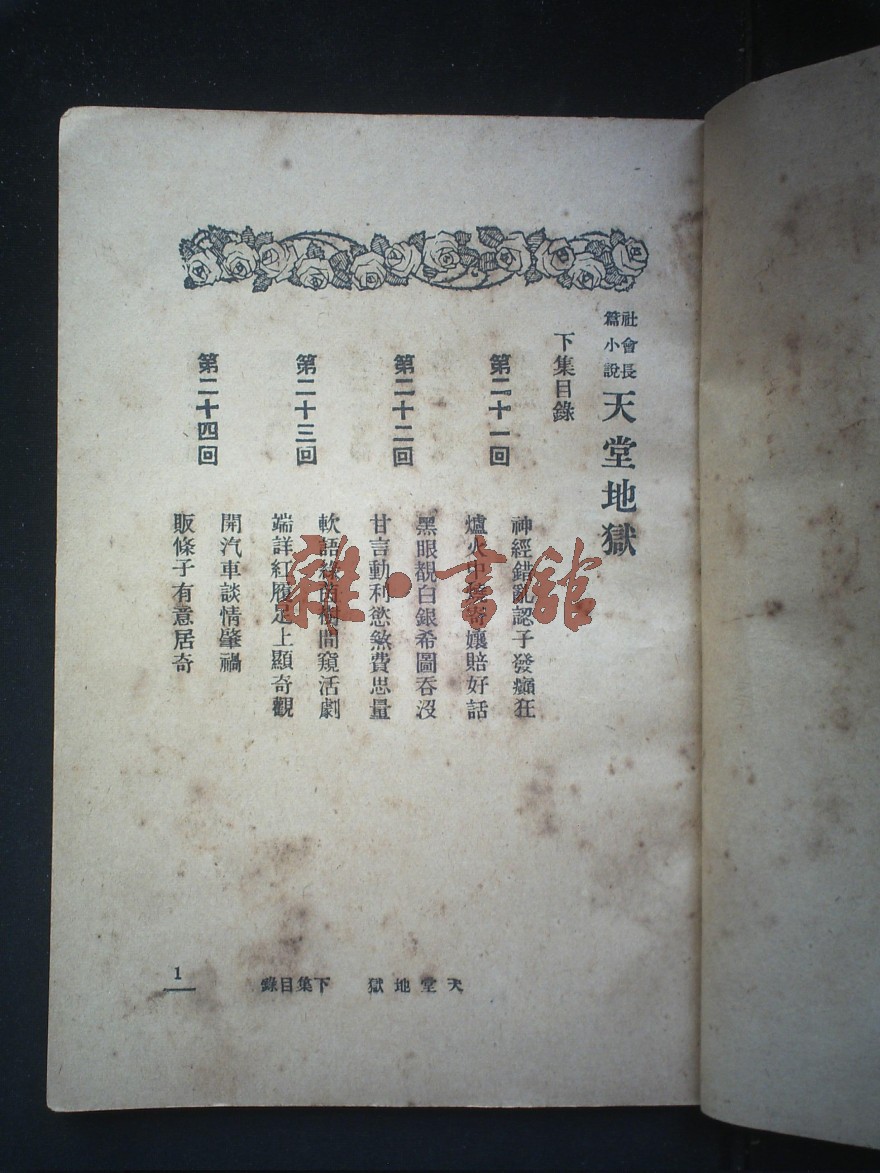 社會長篇小說 天堂地獄
下集目錄
第二十一回
神經錯亂認子發癲狂
爐火中 孃賠好話
第二十二回
黑眼覩白銀希圖吞沒
甘言動利慾煞費思量
第二十三回
軟語 間窺活劇
端詳紅履足上顯奇觀
第二十四回
開汽車談情肇禍
販條子有意居奇
天堂地獄 下集目錄
1
雜·書館